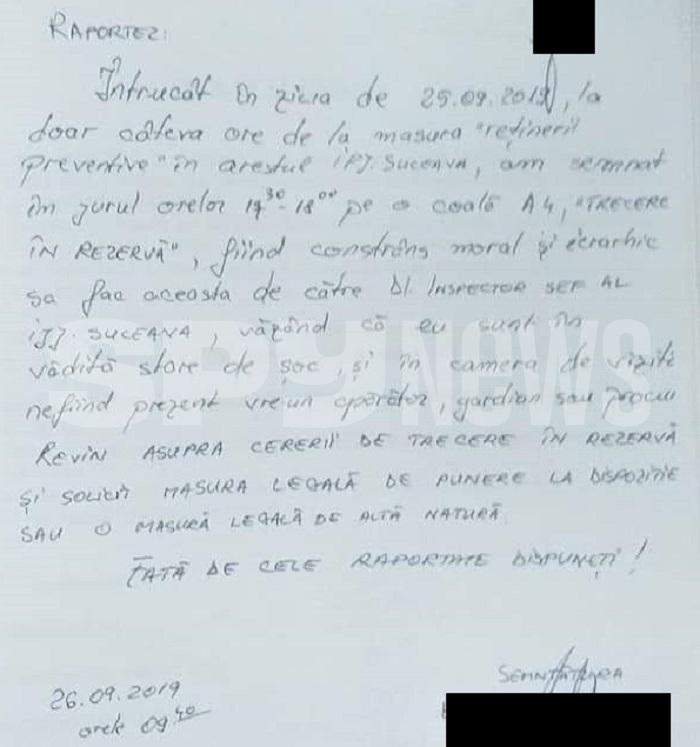 RAPORTEZ:
Întrucât în ziua de 25.09.2019, la
doar câteva ore de la masura "reținerii
preventive" în arestul IPJ. SUCEAVA, am semnat
în jurul orelor 17³⁰-18⁰⁰ pe o coală A4, "TRECERE
ÎN REZERVĂ", fiind constrâns moral și ierarhic
sa fac aceasta de către Dl. INSPECTOR ȘEF AL
IPJ. SUCEAVA, văzând că eu sunt în
vădită stare de șoc, și în camera de vizite
nefiind prezent vreun apărător, gardian sau procu
REVIN ASUPRA CERERII DE TRECERE ÎN REZERVĂ
ȘI SOLICIT MASURA LEGALĂ DE PUNERE LA DISPOZIȚIE
SAU O MASURĂ LEGALĂ DE ALTĂ NATURĂ.
FAȚĂ DE CELE RAPORTATE DISPUNEȚI!
SEMNĂTURA
26.09.2019
orele 09⁴⁰
SPYNEWS